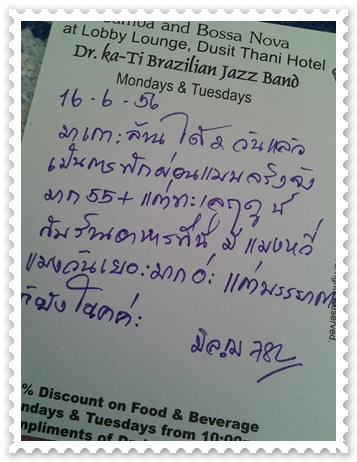 Samba and Bossa Nova
at Lobby Lounge, Dusit Thani Hotel
Dr. ka-Ti Brazilian Jazz Band
Mondays & Tuesdays
16-6-56
มาเกาะล้าน ได้ 2 วันแล้ว
เป็นการพักผ่อนแบบจริงจัง
มาก 55+ แต่ทะเลฤดูนี้
กับร้านอาหารที่นี่ มี แมงหวี่
แมงวันเยอะมากอ่ะ แต่บรรยากาศ
ก็ยัง โอคค่ะ
782
% Discount on Food & Beverage
ndays & Tuesdays from 10:00p
mpliments of D
served.